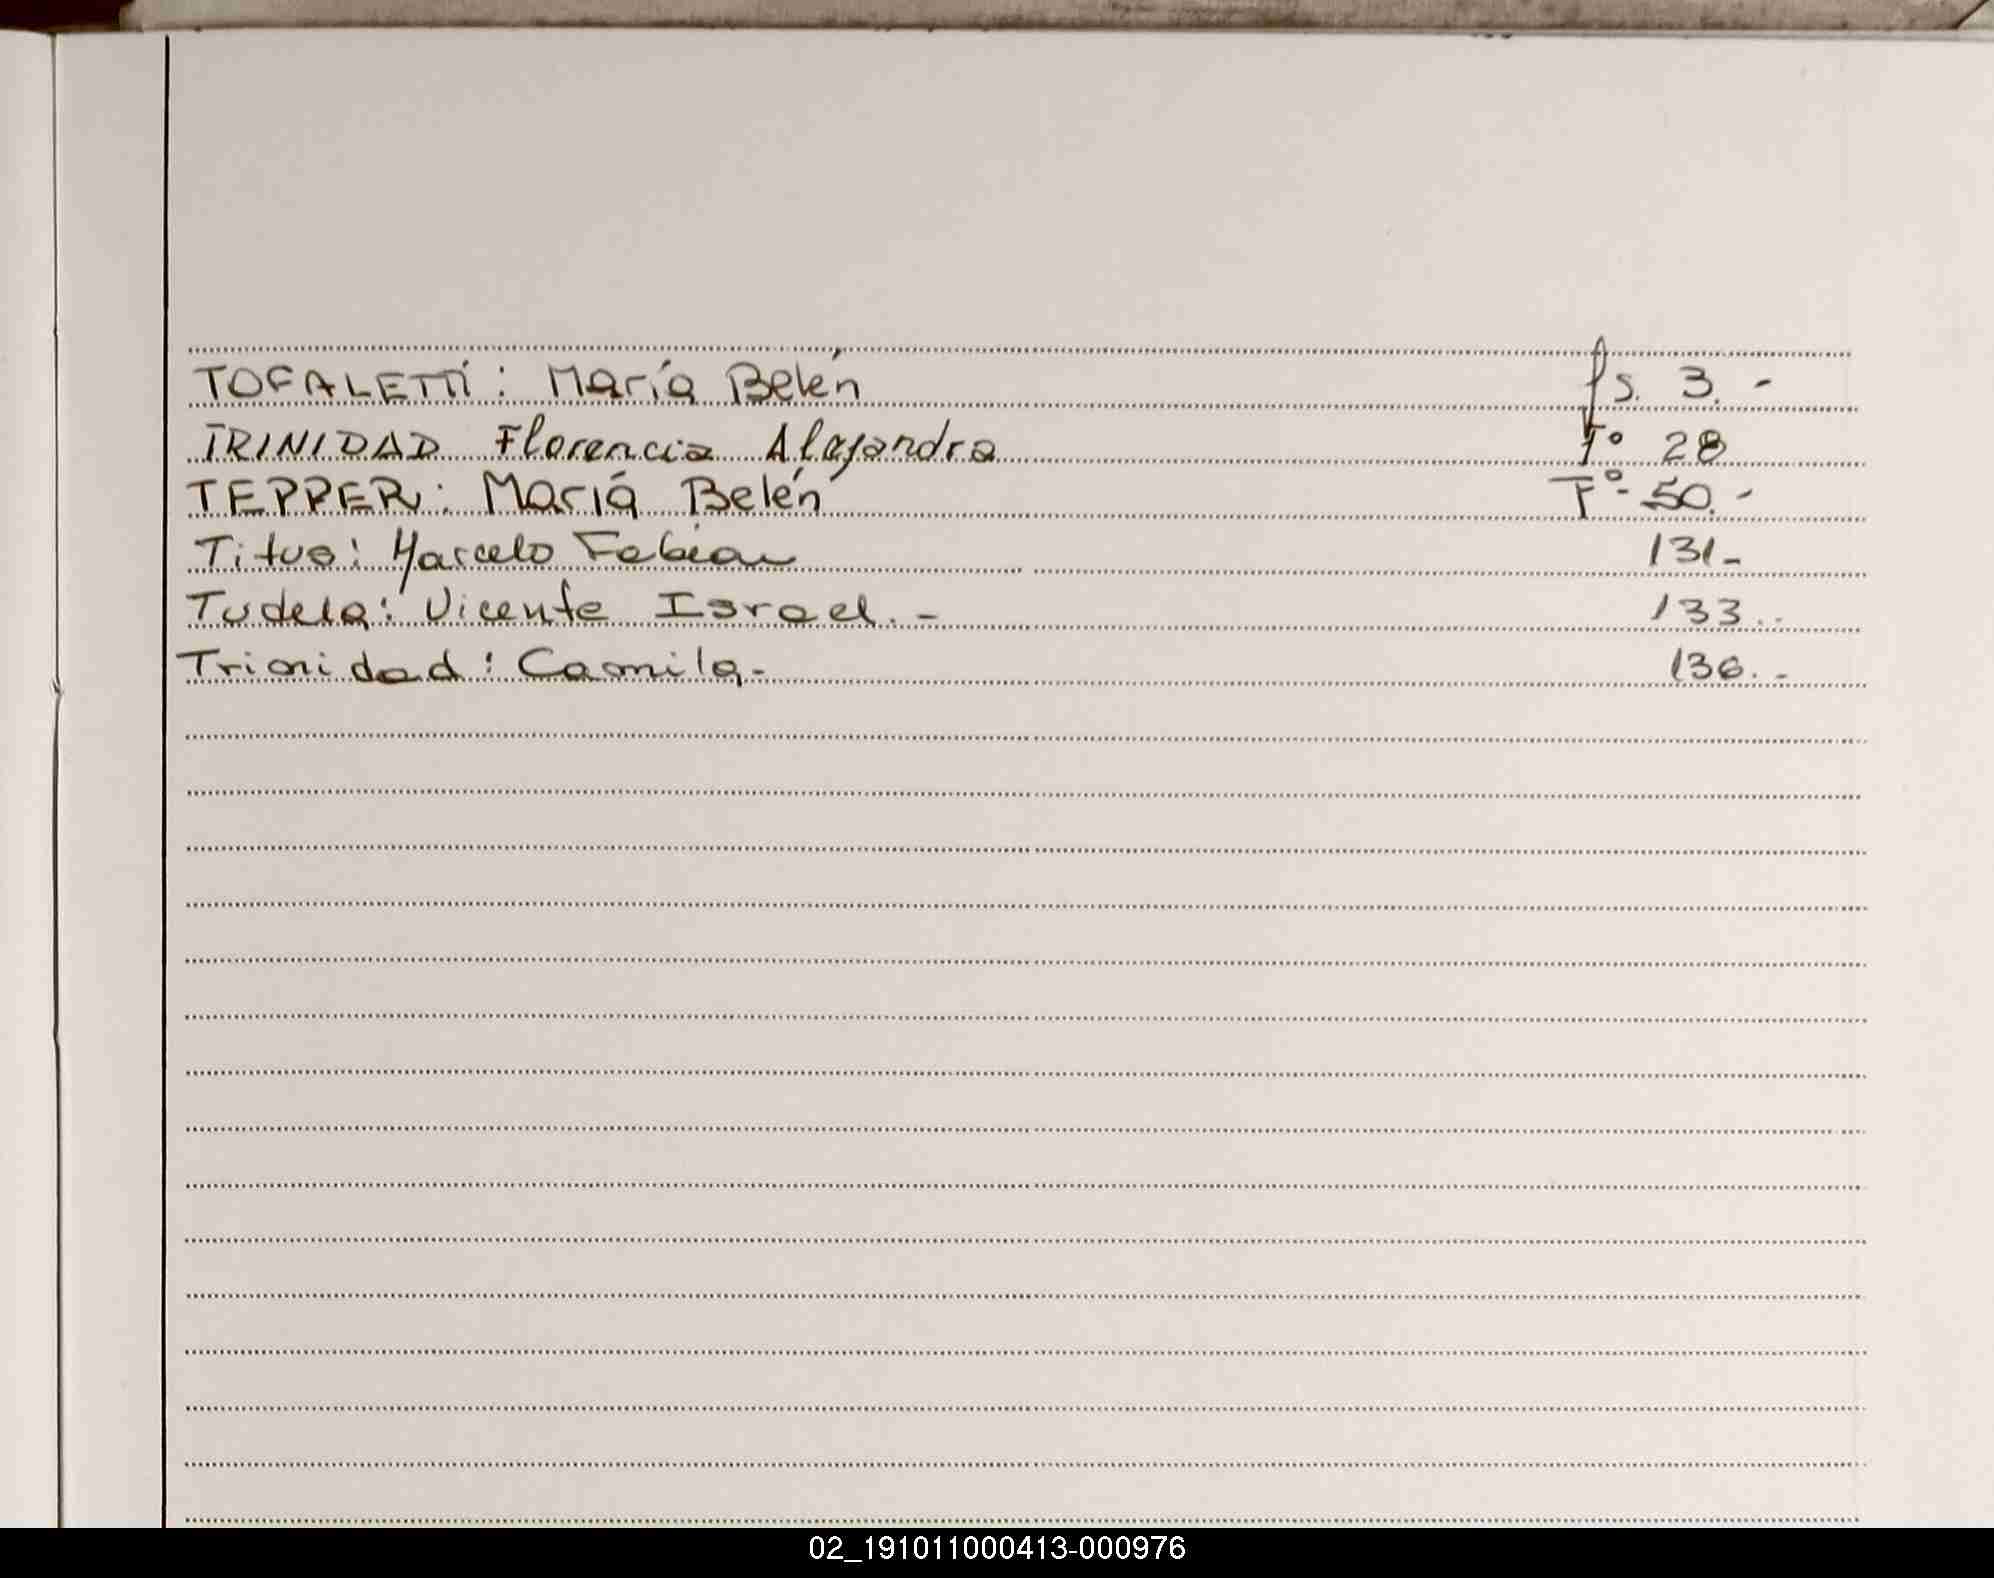 TOFALETTI: María Belén fs. 3.-
TRINIDAD Florencia Alejandra Fº 28
TEPPER: María Belén Fº- 50.-
Titus: Marcelo Fabian 131-
Tudela: Vicente Israel.- 133..
Trinidad: Camila.- 136.-
02_191011000413-000976